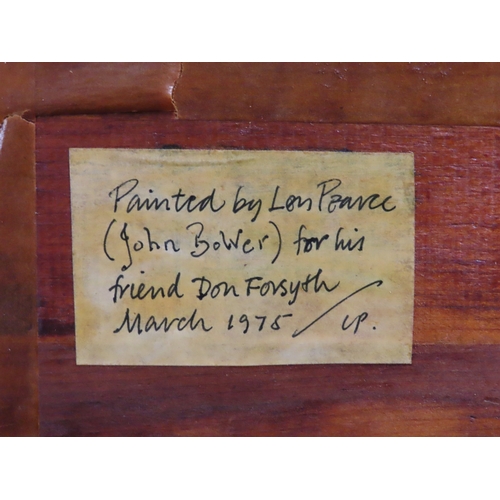 Painted by Len Pearce
(John Bower) for his
friend Don Forsyth
March 1975 / LP.